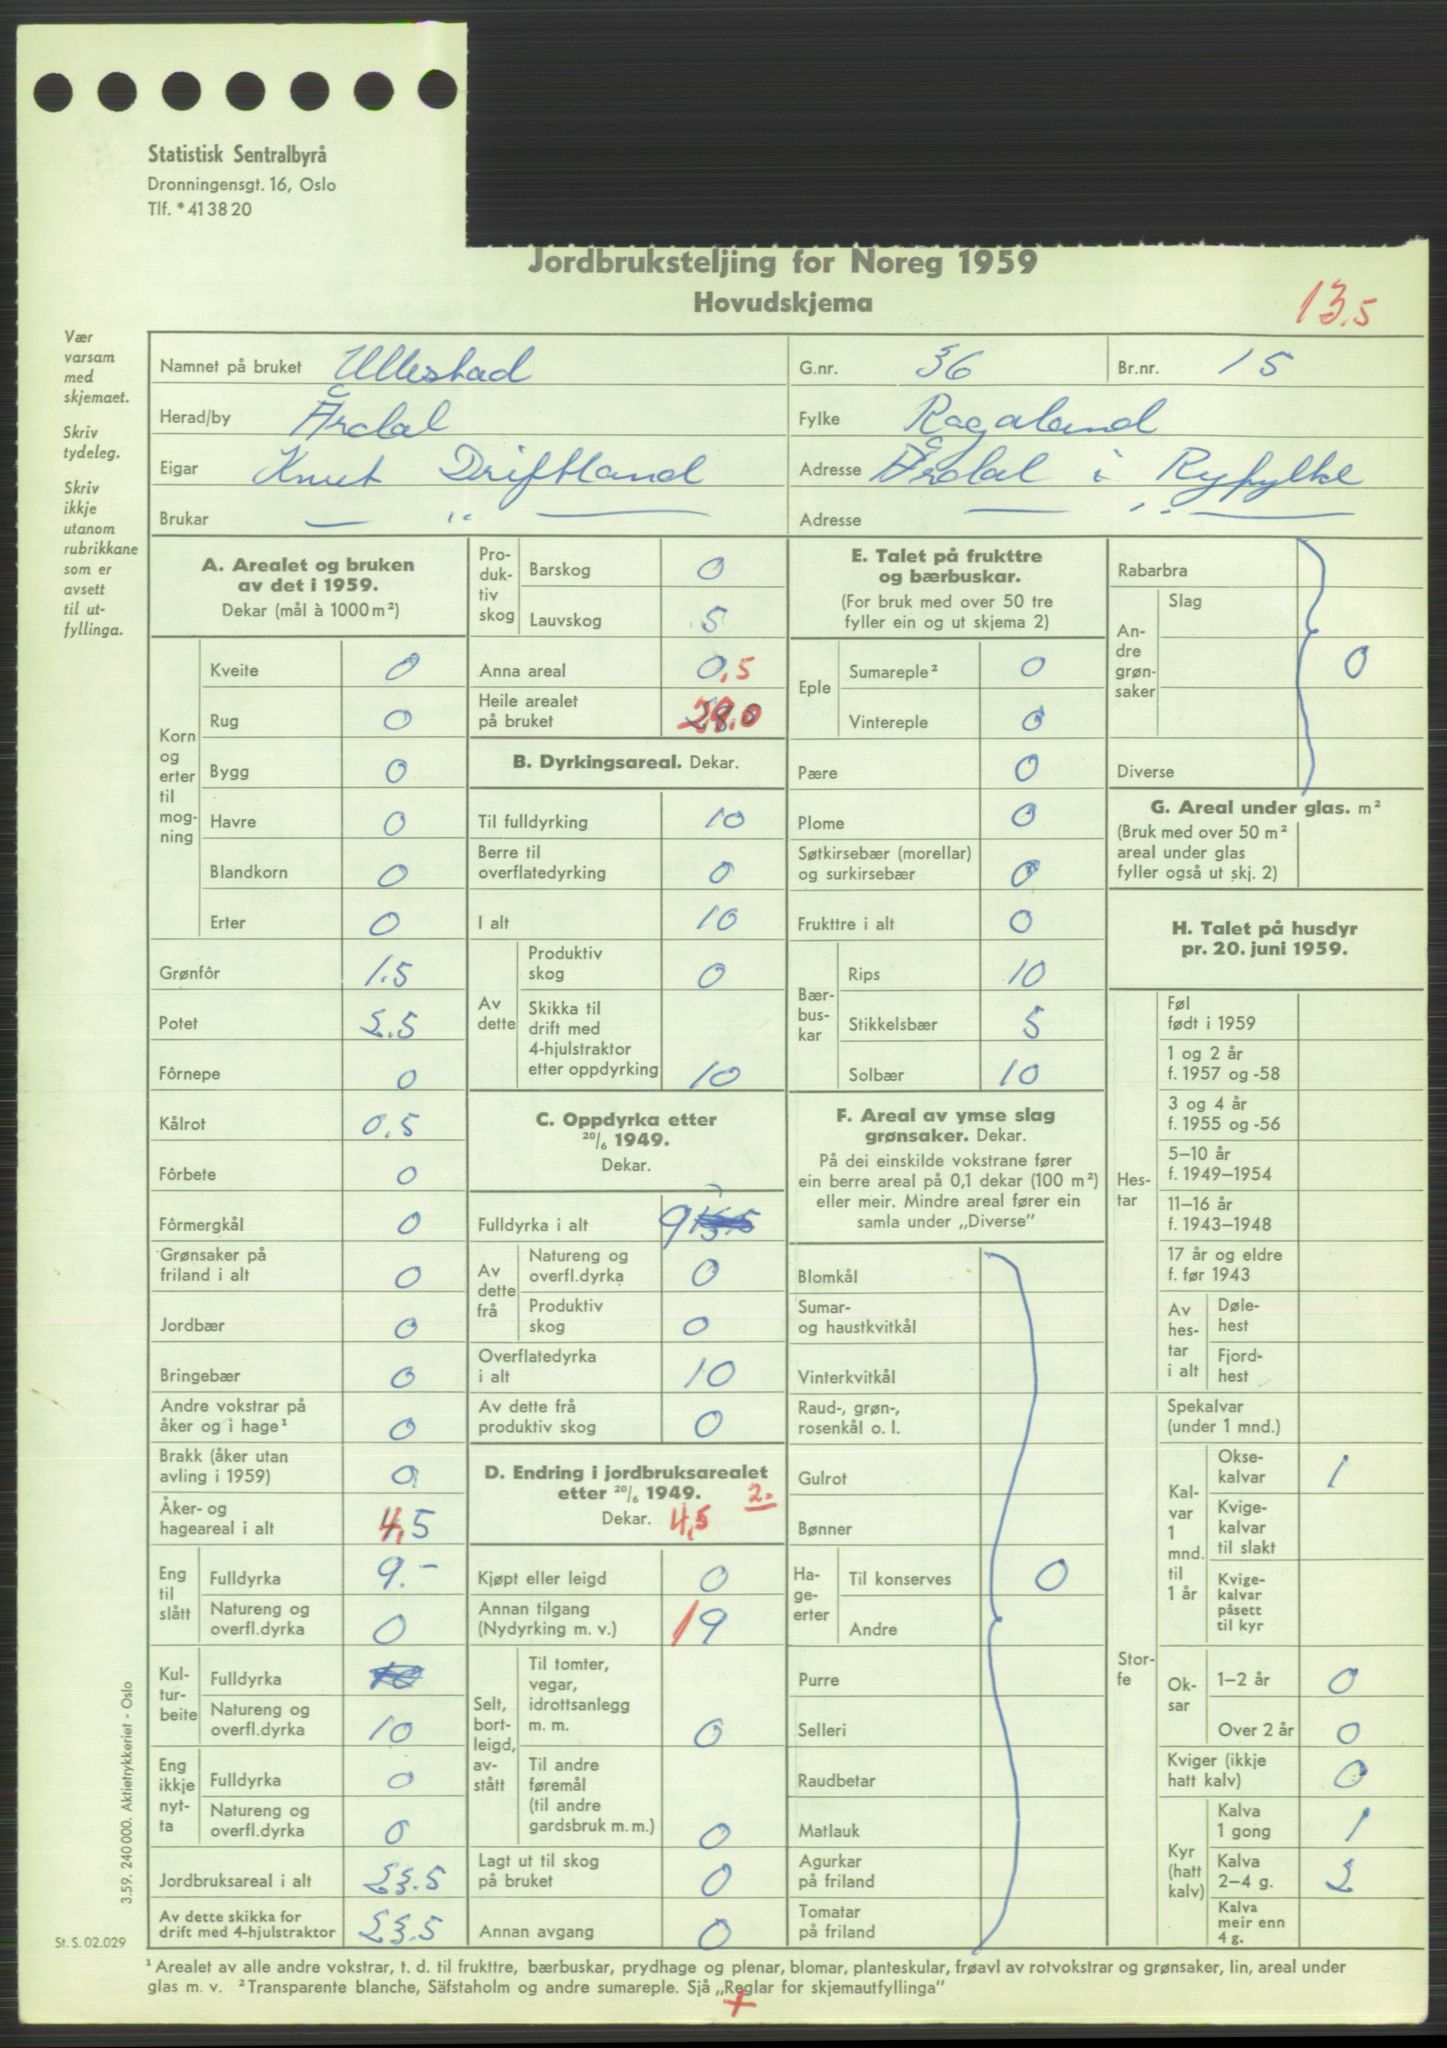 Statistisk Sentralbyrå
Dronningensgt. 16, Oslo
Tlf. * 41 38 20
Jordbruksteljing for Noreg 1959
Hovudskjema
13.5
Vær
varsam
med
skjemaet.
Skriv
tydeleg.
Skriv
ikkje
utanom
rubrikkane
som er
avsett
til ut-
fyllinga.
Namnet på bruket Ullestad G.nr. 36 Br.nr. 15
Herad/by Årdal Fylke Rogaland
Eigar Knut Driftland Adresse Årdal i Ryfylke
Brukar — " — Adresse — " —
A. Arealet og bruken
av det i 1959.
Dekar (mål à 1000 m²)
Korn
og
erter
til
mog-
ning
Kveite 0
Rug 0
Bygg 0
Havre 0
Blandkorn 0
Erter 0
Grønfôr 1.5
Potet 2.5
Fôrnepe 0
Kålrot 0.5
Fôrbete 0
Fôrmergkål 0
Grønsaker på
friland i alt 0
Jordbær 0
Bringebær 0
Andre vokstrar på
åker og i hage¹ 0
Brakk (åker utan
avling i 1959) 0
Åker- og
hageareal i alt 4,5
Eng
til
slått
Fulldyrka 9.-
Natureng og
overfl.dyrka 0
Kul-
tur-
beite
Fulldyrka
Natureng og
overfl.dyrka 10
Eng
ikkje
nyt-
ta
Fulldyrka 0
Natureng og
overfl.dyrka 0
Jordbruksareal i alt 23.5
Av dette skikka for
drift med 4-hjulstraktor 23.5
Pro-
duk-
tiv
skog
Barskog 0
Lauvskog 5
Anna areal 0,5
Heile arealet
på bruket 29.0
B. Dyrkingsareal. Dekar.
Til fulldyrking 10
Berre til
overflatedyrking 0
I alt 10
Av
dette
Produktiv
skog 0
Skikka til
drift med
4-hjulstraktor
etter oppdyrking 10
C. Oppdyrka etter
20/6 1949.
Dekar.
Fulldyrka i alt 9
Av
dette
frå
Natureng og
overfl.dyrka 0
Produktiv
skog 0
Overflatedyrka
i alt 10
Av dette frå
produktiv skog 0
D. Endring i jordbruksarealet
etter 20/6 1949. 2.-
Dekar. 4,5
Kjøpt eller leigd 0
Annan tilgang
(Nydyrking m. v.) 19
Selt,
bort-
leigd,
av-
stått
Til tomter,
vegar,
idrottsanlegg
m. m. 0
Til andre
føremål
(til andre
gardsbruk m. m.) 0
Lagt ut til skog
på bruket 0
Annan avgang 0
E. Talet på frukttre
og bærbuskar.
(For bruk med over 50 tre
fyller ein og ut skjema 2)
Eple
Sumareple² 0
Vintereple 0
Pære 0
Plome 0
Søtkirsebær (morellar)
og surkirsebær 0
Frukttre i alt 0
Bær-
bus-
kar
Rips 10
Stikkelsbær 5
Solbær 10
F. Areal av ymse slag
grønsaker. Dekar.
På dei einskilde vokstrane fører
ein berre areal på 0,1 dekar (100 m²)
eller meir. Mindre areal fører ein
samla under „Diverse”
Blomkål
Sumar-
og haustkvitkål
Vinterkvitkål
Raud-, grøn-,
rosenkål o. l.
Gulrot
Bønner
Ha-
ge-
erter
Til konserves 0
Andre
Purre
Selleri
Raudbetar
Matlauk
Agurkar
på friland
Tomatar
på friland
Rabarbra
An-
dre
grøn-
saker
Slag
0
Diverse
G. Areal under glas. m²
(Bruk med over 50 m²
areal under glas
fyller også ut skj. 2)
H. Talet på husdyr
pr. 20. juni 1959.
Hes-
tar
Føl
født i 1959
1 og 2 år
f. 1957 og -58
3 og 4 år
f. 1955 og -56
5–10 år
f. 1949–1954
11–16 år
f. 1943–1948
17 år og eldre
f. før 1943
Av
hes-
tar
i alt
Døle-
hest
Fjord-
hest
Stor-
fe
Spekalvar
(under 1 mnd.)
Kal-
var
1
mnd.
til
1 år
Okse-
kalvar 1
Kvige-
kalvar
til slakt
Kvige-
kalvar
påsett
til kyr
Ok-
sar
1–2 år 0
Over 2 år 0
Kviger (ikkje
hatt kalv) 0
Kyr
(hatt
kalv)
Kalva
1 gong 1
Kalva
2–4 g. 2
Kalva
meir enn
4 g.
3.59. 240 000. Aktietrykkeriet - Oslo
St. S. 02.029
¹ Arealet av alle andre vokstrar, t. d. til frukttre, bærbuskar, prydhage og plenar, blomar, planteskular, frøavl av rotvokstrar og grønsaker, lin, areal under
glas m. v. ² Transparente blanche, Säfstaholm og andre sumareple. Sjå „Reglar for skjemautfyllinga”